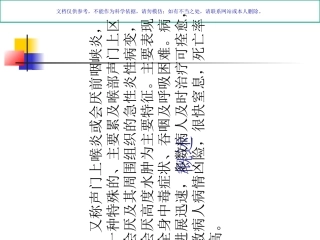 文档仅供参考，不能作为科学依据，请勿模仿；如有不当之处，请联系网站或本人删除。
又称声门上喉炎或会厌前咽峡炎，
一种特殊的、主要累及喉部声门上区
会厌及其周围组织的急性炎性病变，
会厌高度水肿为主要特征。主要表现
全身中毒症状、吞咽及呼吸困难。病
进展迅速，多数病人及时治疗可痊愈，
数病人病情凶险，很快窒息，死亡率
高。